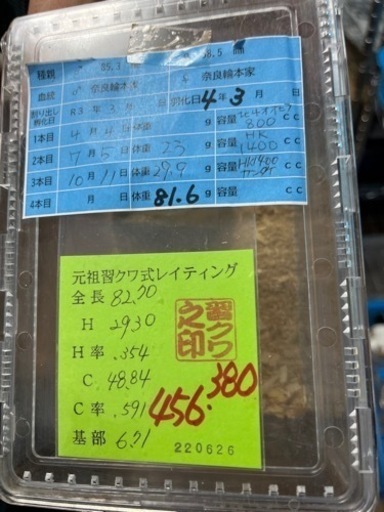 種親 ♂ 85.1 ♀ 58.5 ㎜
血統 ♂ 奈良輪本家 ♀ 奈良輪本家
割り出し R3年 3月 孵化日 4年 3月 日
孵化日
1本目 4月 4日 体重 g 容量 800 cc
2本目 7月 5日 体重 23 g 容量 HK 1400 cc
3本目 10月 11日 体重 29.9 g 容量 cc
4本目 月 日 体重 81.6 g 容量 cc
元祖習クワ式レイティング
全長 82.70
H 29.30
H率 .354
C 48.84
C率 .591
基部 6.71
習クワ之印
456.380
220626